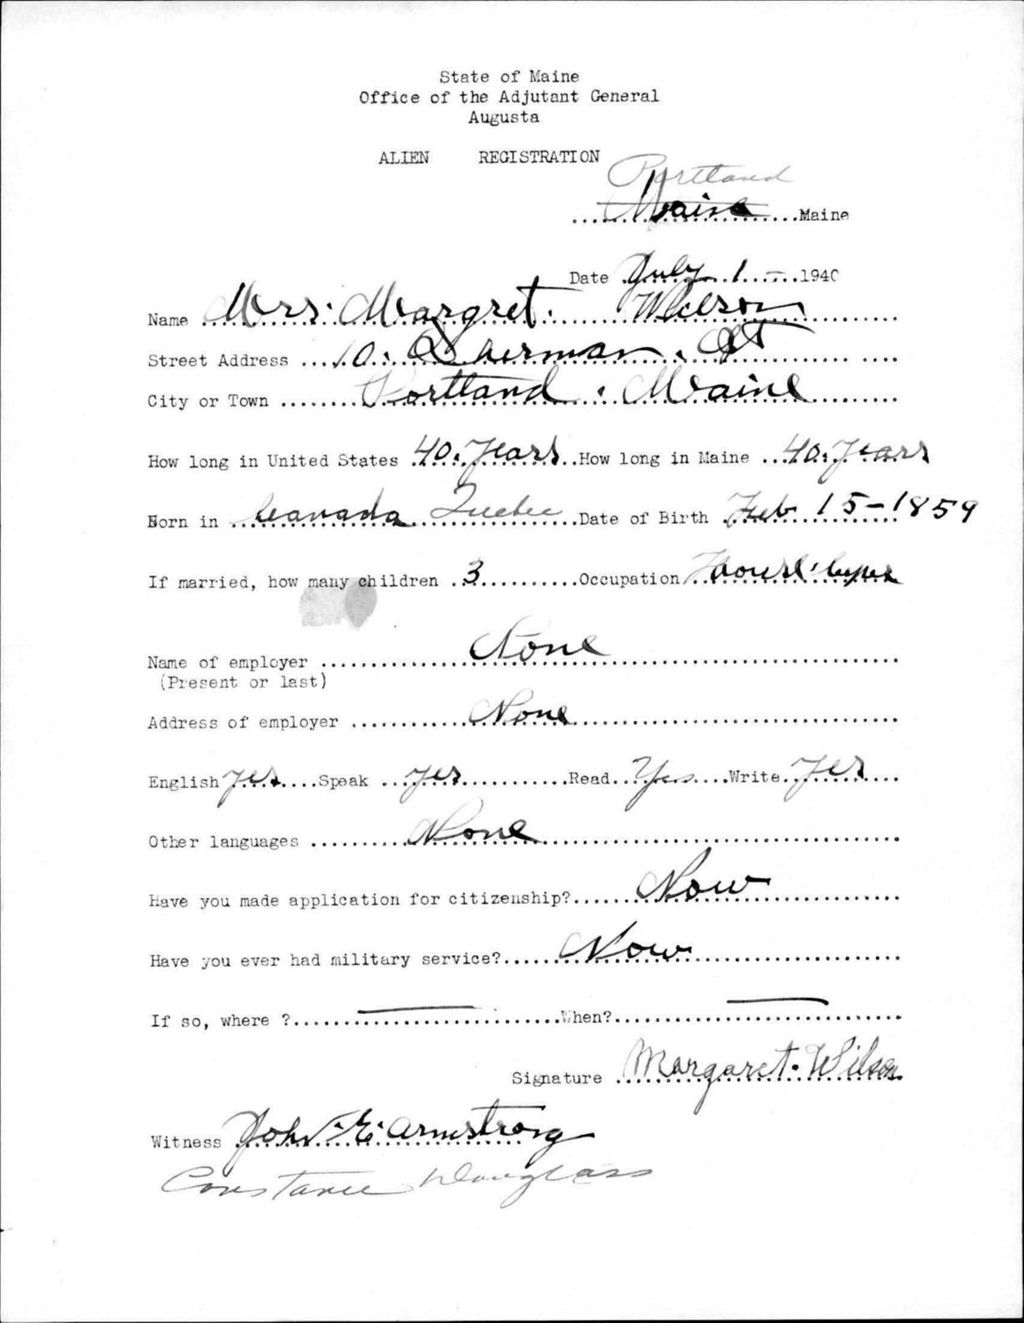 State of Maine
Office of the Adjutant General
Augusta
ALIEN REGISTRATION
Portland
Maine Maine
Date July 1 - 1940
Name Mrs. Margret. Wilson
Street Address 10. Sherman. St
City or Town Portland. Maine
How long in United States 40. Years How long in Maine 40. Years
Born in Canada Quebec Date of Birth Feb 15-1859
If married, how many children 3 Occupation
Name of employer None
(Present or last)
Address of employer None
English Yes Speak Yes Read Yes Write Yes
Other languages None
Have you made application for citizenship? Now
Have you ever had military service? Now
If so, where ? — When? —
Signature Margaret. Wilson
Witness John. E. Armstrong
Constance Douglass